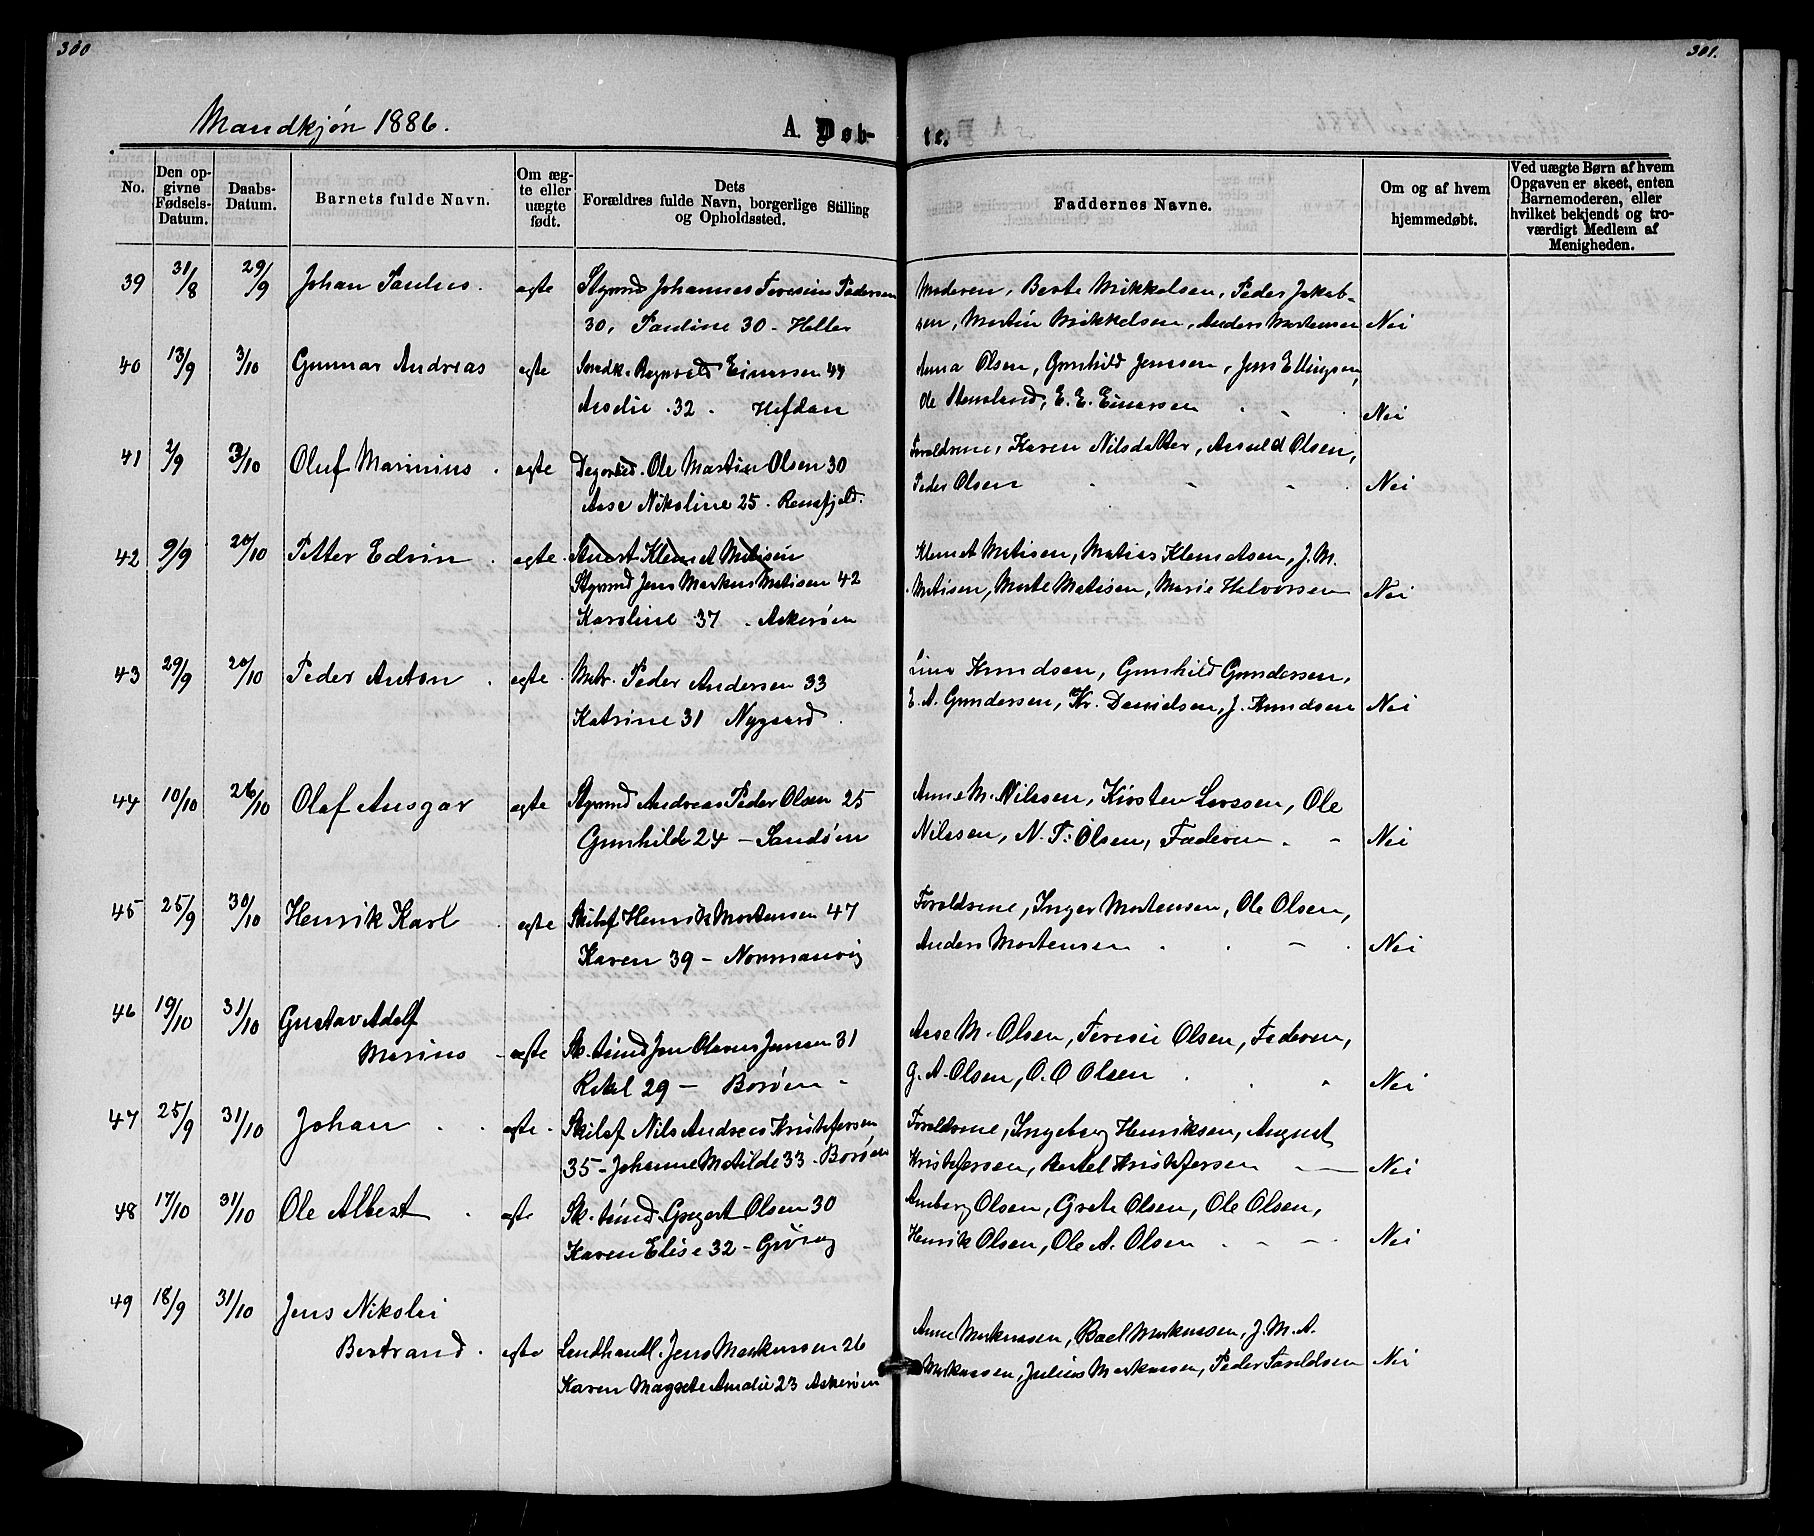 300
301.
Mandkjøn 1886.
A. Døb-
te.
No.
Den op-
givne
Fødsels-
Datum.
Daabs-
Datum.
Barnets fulde Navn.
Om æg-
te eller
uægte
født.
Dets
Forældres fulde Navn, borgerlige Stilling
og Opholdssted.
Faddernes Navne.
Om og af hvem
hjemmedøbt.
Ved uægte Børn af hvem
Opgaven er skeet, enten
Barnemoderen, eller
hvilket bekjendt og tro-
værdigt Medlem af
Menigheden.
39 31/8 29/9 Johan Paulus. ægte Styrmd Johannes Feresius Pedersen
30, Pauline 30 - Heller
Moderen, Berte Mikkelsen, Peder Jakob-
sen, Martin Mikkelsen, Anders Mortensen Nei
40 13/9 3/10 Gunnar Andreas ægte Smedk. Ragnvald Einersen 44
Aselie . 32 . Hefdan
Anna Olsen, Gunhild Jenssen, Jens Ellingsen,
Ole Stensland, E. E. Einersen - - Nei
41 2/9 3/10 Oluf Marinius . ægte Dagarbd. Ole Martin Olsen 30
Aase Nikoline 25 . Rensfjeld.
Foraldrene, Karen Nilsdatter, Asuld Olsen,
Peder Olsen - - - Nei
42 9/9 20/10 Petter Edvin . ægte. Klemet Matisen
Styrmd Jens Markus Matisen 42
Karoline 37 . Askerøen
Klemet Matisen, Matias Klemetsen, J. M.
Matisen, Marte Matisen, Marie Halvorsen Nei
43 29/9 20/10 Peder Anton . ægte . Matr. Peder Andersen 33
Katrine 31 Nygaard .
Lina Knudsen, Gunhild Gundersen,
E. A. Gundersen, Kr. Danielsen, J. Knudsen Nei
44 10/10 26/10 Olaf Ansgar ægte Styrmd Andreas Peder Olsen 25
Gunhilde 24 - Sandøen
Anne M. Nilssen, Kirsten Larssen, Ole
Nilssen, N. P. Olsen, Faderen . - Nei
45 25/9 30/10 Henrik Karl . ægte Skibsf Henrik Mortensen 47
Karen 39 - Normanvig
Foraldrene, Inger Mortensen, Ole Olsen,
Anders Mortensen . . - . Nei
46 19/10 31/10 Gustav Adolf
Marius - ægte Sk.tømd Jen Olavus Jensen 31
Rakel 29 - Borøen -
Aase M. Olsen, Teresie Olsen, Faderen,
G. A. Olsen, O. O Olsen . . . Nei
47 25/9 31/10 Johan . . ægte. Skibsf Nils Andreas Kristofersen
35 - Johanne Matilde 33 - Borøen
Foraldrene, Ingeborg Henriksen, August
Kristofersen, Bertel Kristofersen - - Nei
48 17/10 31/10 Ole Albert . ægte Sk.tømd Gregert Olsen 30
Karen Elise 32 - Grøsvig
Anberg Olsen, Grete Olsen, Ole Olsen,
Henrik Olsen, Ole A. Olsen . - - . Nei
49 18/9 31/10 Jens Nikolai
Bertrand . ægte Landhandl. Jens Markussen 26
Karen Magrete Amalie 23 Askerøen
Anne Markussen, Rael Markussen, J. M. A.
Markussen, Julius Markussen, Peder Taraldsen Nei